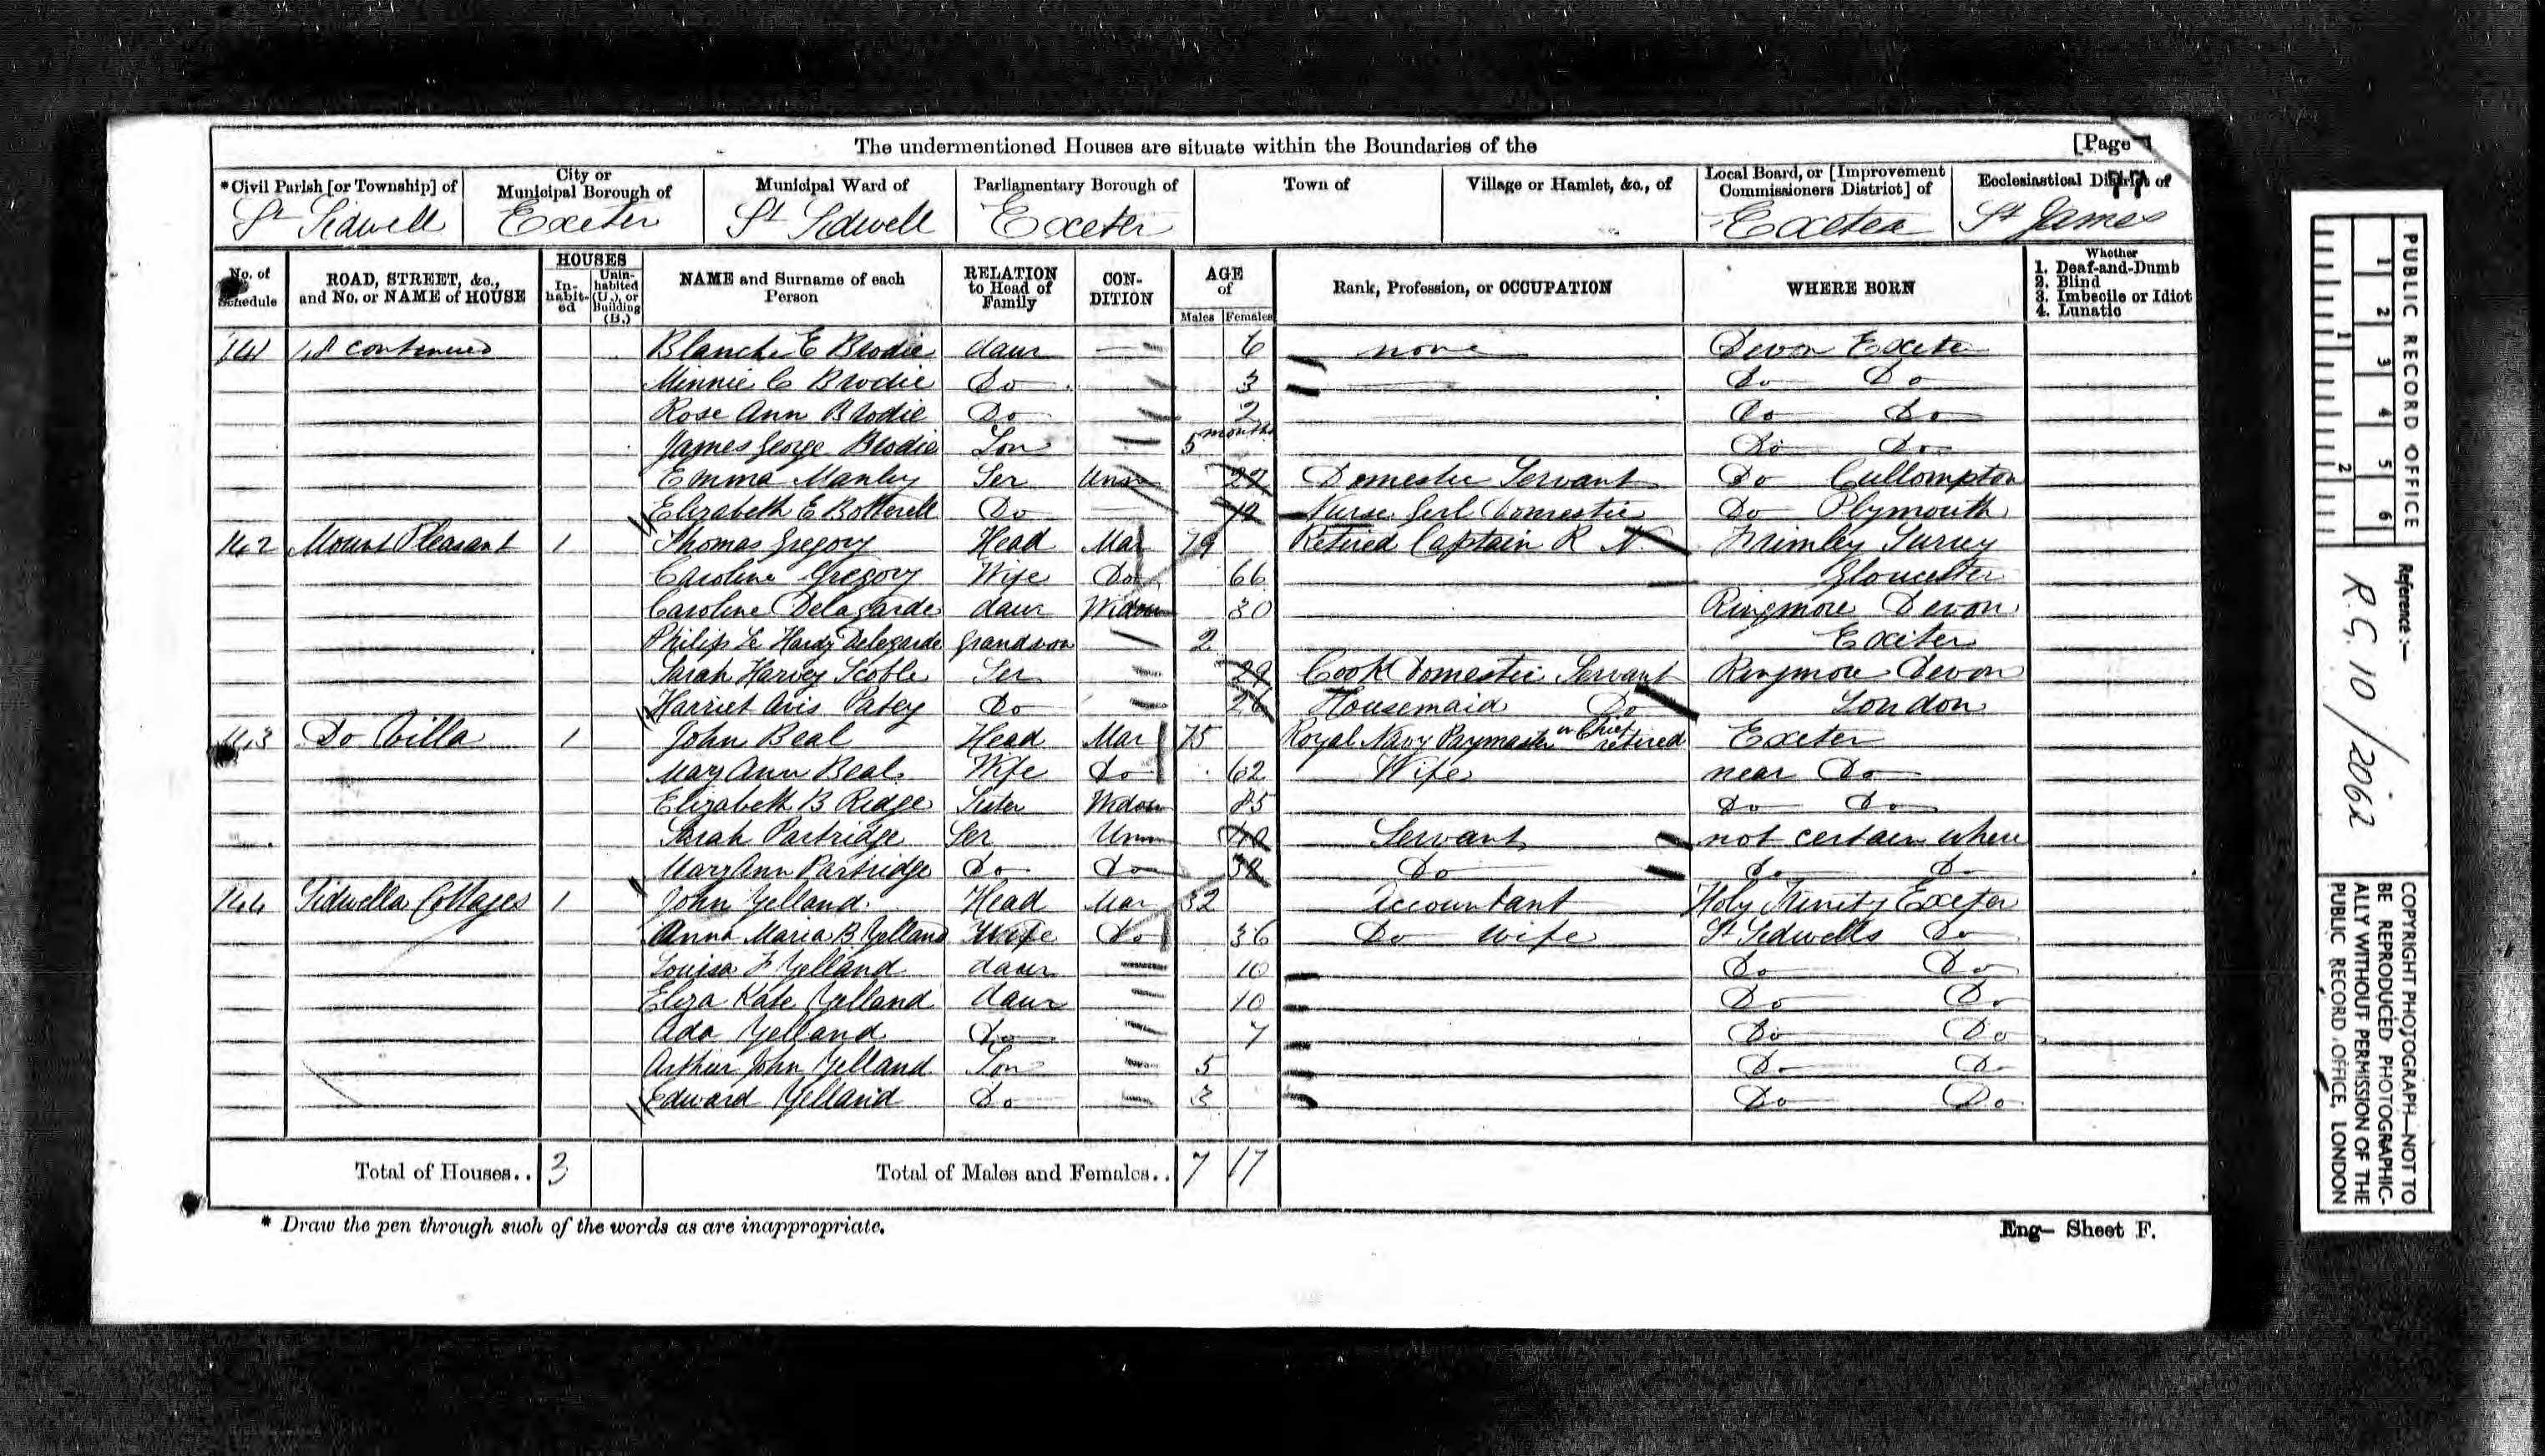 The undermentioned Houses are situate within the Boundaries of the [Page
*Civil Parish [or Township] of City or Municipal Borough of Municipal Ward of Parliamentary Borough of Town of Village or Hamlet, &c., of Local Board, or [Improvement Commissioners District] of Ecclesiastical District of
St Sidwell Exeter St Sidwell Exeter Exeter St James
No. of Schedule ROAD, STREET, &c., and No. or NAME of HOUSE HOUSES Inhabited Uninhabited (U.), or Building (B.) NAME and Surname of each Person RELATION to Head of Family CONDITION AGE of Males Females Rank, Profession, or OCCUPATION WHERE BORN Whether
1. Deaf-and-Dumb
2. Blind
3. Imbecile or Idiot
4. Lunatic
141 continued Blanche E Brodie daur 6 none Devon Exeter
Minnie C Brodie Do 3 Do Do
Rose Ann Brodie Do 2 Do Do
James George Brodie Son 5 months Do Do
Emma Manley Ser Unm 22 Domestic Servant Do Cullompton
Elizabeth E Botterell Do 12 Nurse Girl Domestic Do Plymouth
142 Mount Pleasant 1 Thomas Gregory Head Mar 79 Retired Captain R N Frimley Surrey
Caroline Gregory Wife Do 66 Gloucester
Caroline Delagarde daur Widow 30 Ringmore Devon
Philip Le Hardy Delegarde Grandson 2 Exeter
Sarah Harvey Scoble Ser 29 Cook Domestic Servant Ringmore Devon
Harriet Avis Patey Do 26 Housemaid Do London
143 Do Villa 1 John Beal Head Mar 75 Royal Navy Paymaster in Chief retired Exeter
Mary Ann Beal Wife Do 62 Wife near Do
Elizabeth B Ridge Sister Widow 85 Do Do
Sarah Partridge Ser Unm 40 Servant not certain where
Mary Ann Partridge Do Do 32 Do do Do
144 Sidwella Cottages 1 John Yelland Head Mar 32 Accountant Holy Trinity Exeter
Anna Maria B Yelland Wife Do 36 Do wife St Sidwells Do
Louisa F Yelland daur 10 Do Do
Eliza Kate Yelland daur 10 Do Do
Ada Yelland Do 7 Do Do
Arthur John Yelland Son 5 Do Do
Edward Yelland Do 3 Do Do
Total of Houses.. 3 Total of Males and Females.. 7 17
* Draw the pen through such of the words as are inappropriate. Eng— Sheet F.
PUBLIC RECORD OFFICE
1 2 3 4 5 6
1 2
Reference:—
R.G. 10/2062
COPYRIGHT PHOTOGRAPH—NOT TO
BE REPRODUCED PHOTOGRAPHIC-
ALLY WITHOUT PERMISSION OF THE
PUBLIC RECORD OFFICE, LONDON